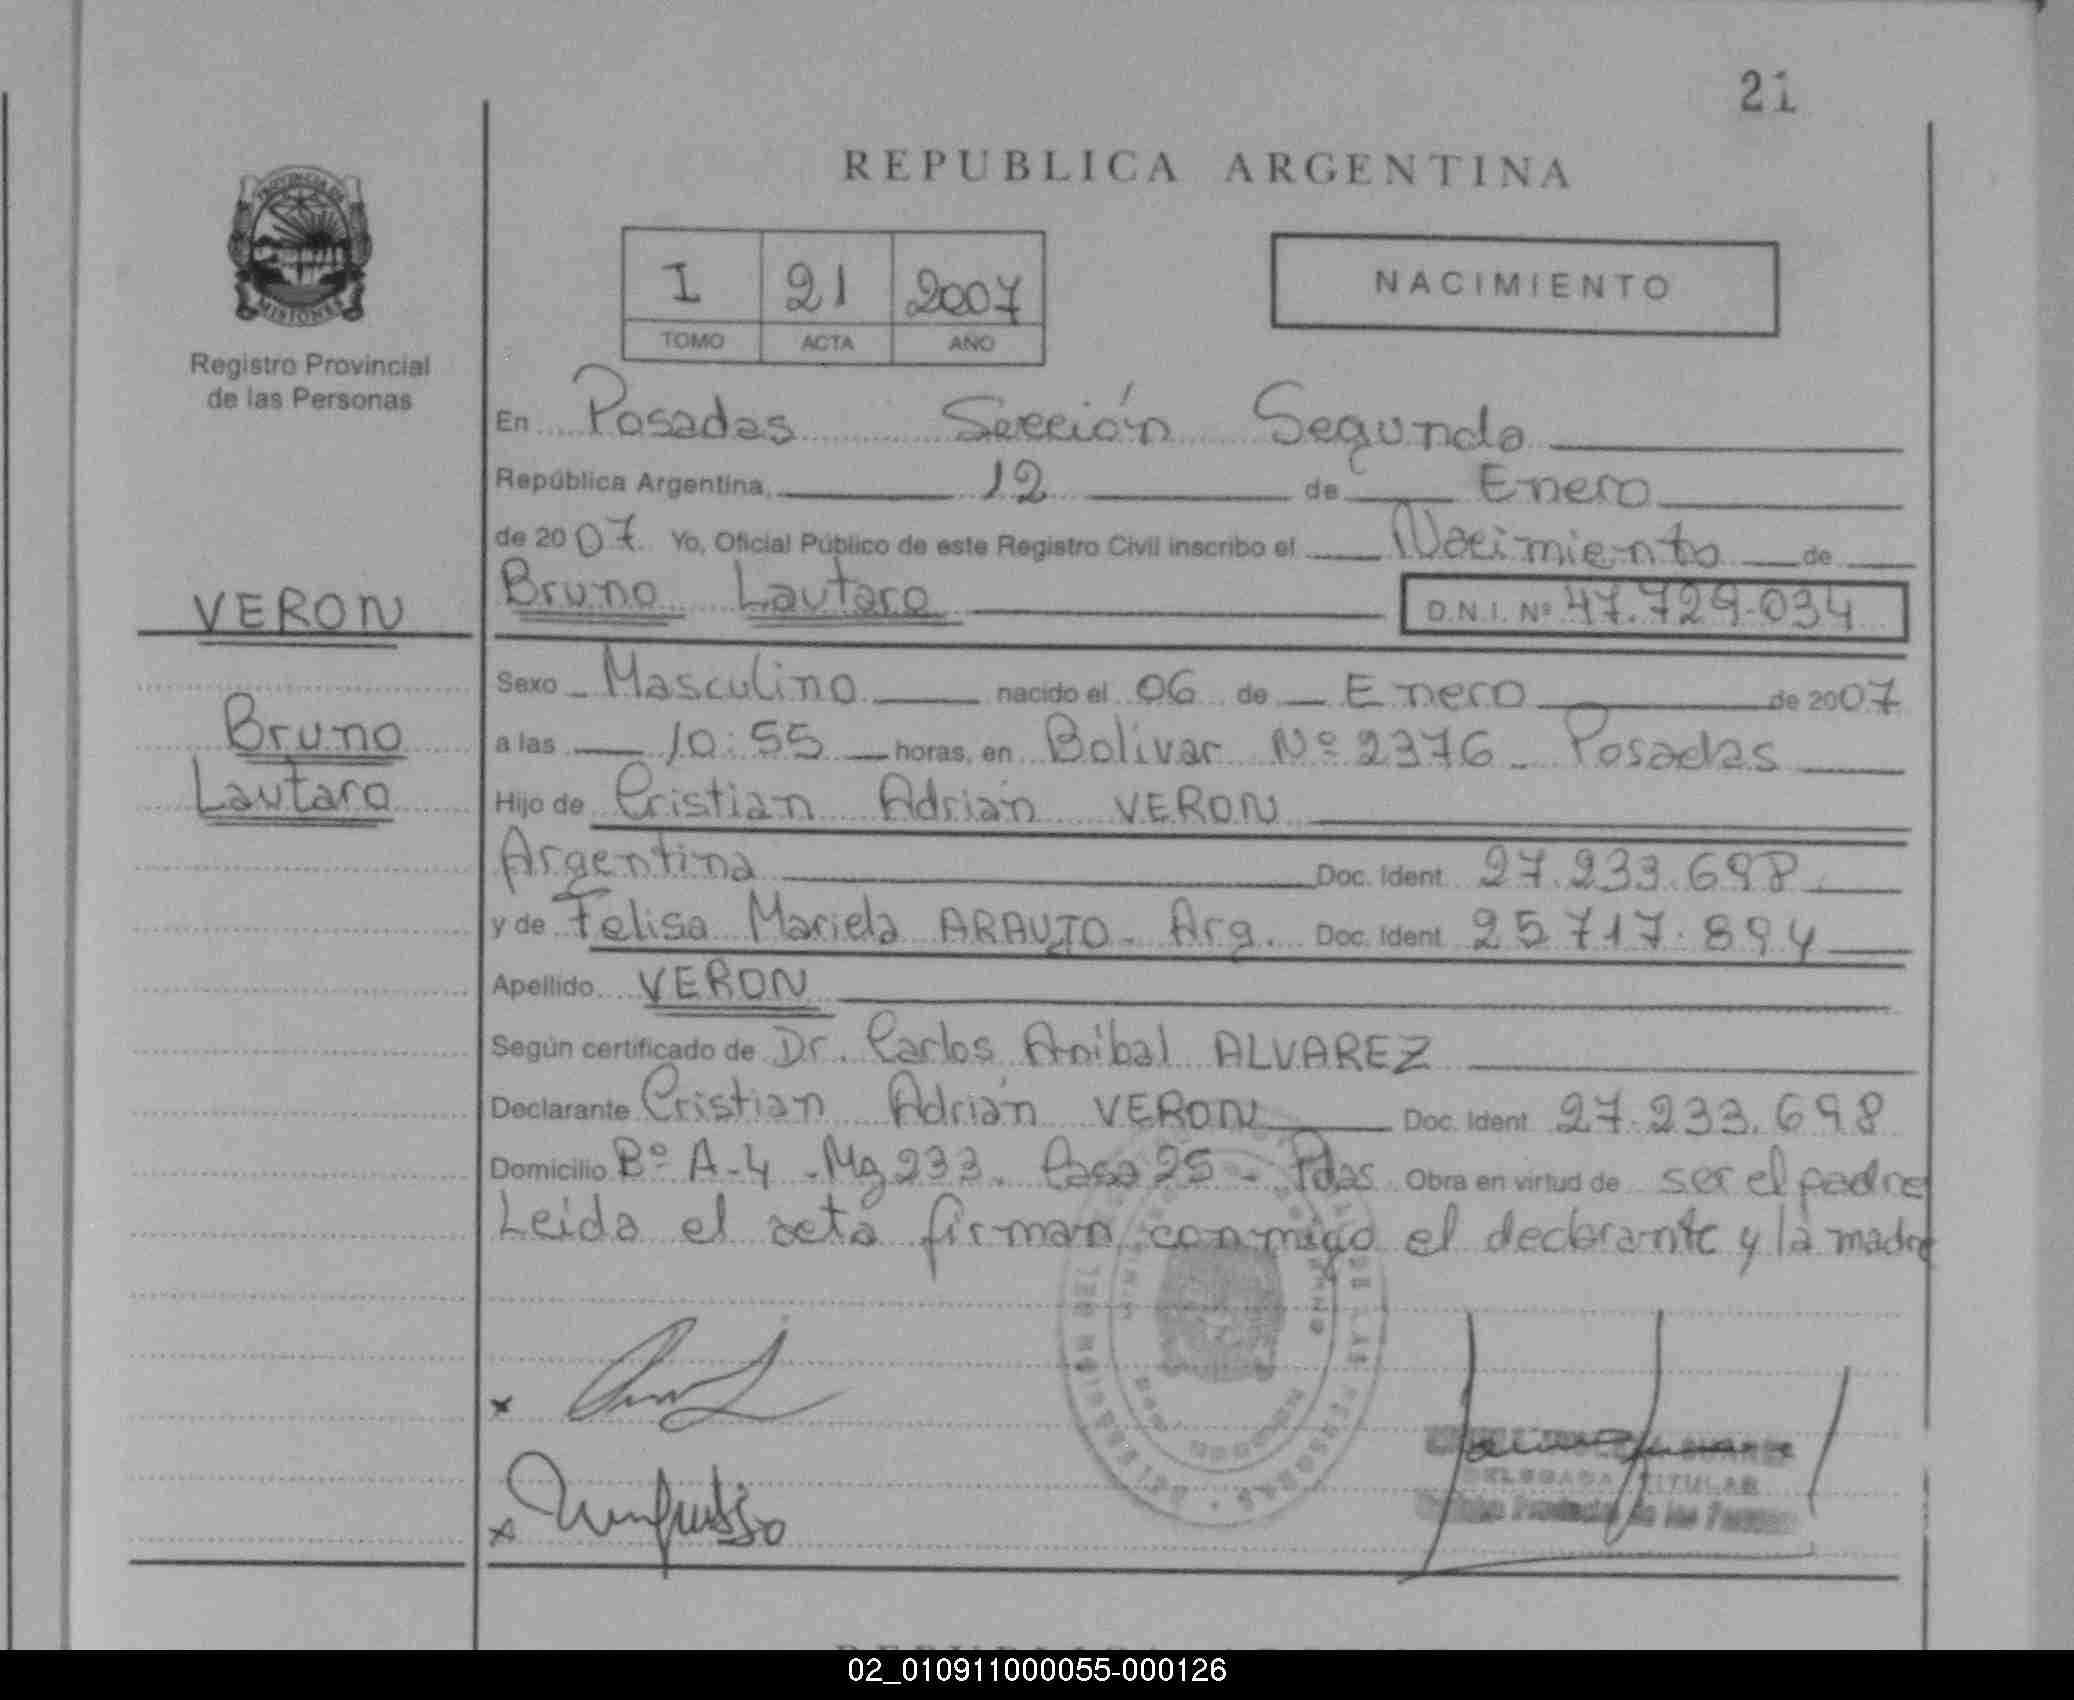 21
REPUBLICA ARGENTINA
PROVINCIA DE
MISIONES
Registro Provincial
de las Personas
I 21 2007
TOMO ACTA AÑO
NACIMIENTO
En Posadas Sección Segunda
República Argentina, 12 de Enero
de 2007. Yo, Oficial Público de este Registro Civil inscribo el Nacimiento de
VERON
Bruno Lautaro D.N.I. Nº 47.729.034
Sexo Masculino nacido el 06 de Enero de 2007
Bruno
a las 10:55 horas, en Bolivar Nº 2376 - Posadas
Lautaro
Hijo de Cristian Adrián VERON
Argentina Doc. Ident. 27.233.698
y de Felisa Mariela ARAUJO - Arg. Doc. Ident. 25.717.894
Apellido VERON
Según certificado de Dr. Carlos Anibal ALVAREZ
Declarante Cristian Adrián VERON Doc. Ident. 27.233.698
Domicilio Bº A-4 - Mz 233. Casa 25 - Pdas Obra en virtud de ser el padre
Leida el acta firman conmigo el declarante y la madre
DE LAS PERSONAS
SUAREZ
DELEGADA TITULAR
Provincial de las Personas
02_010911000055-000126